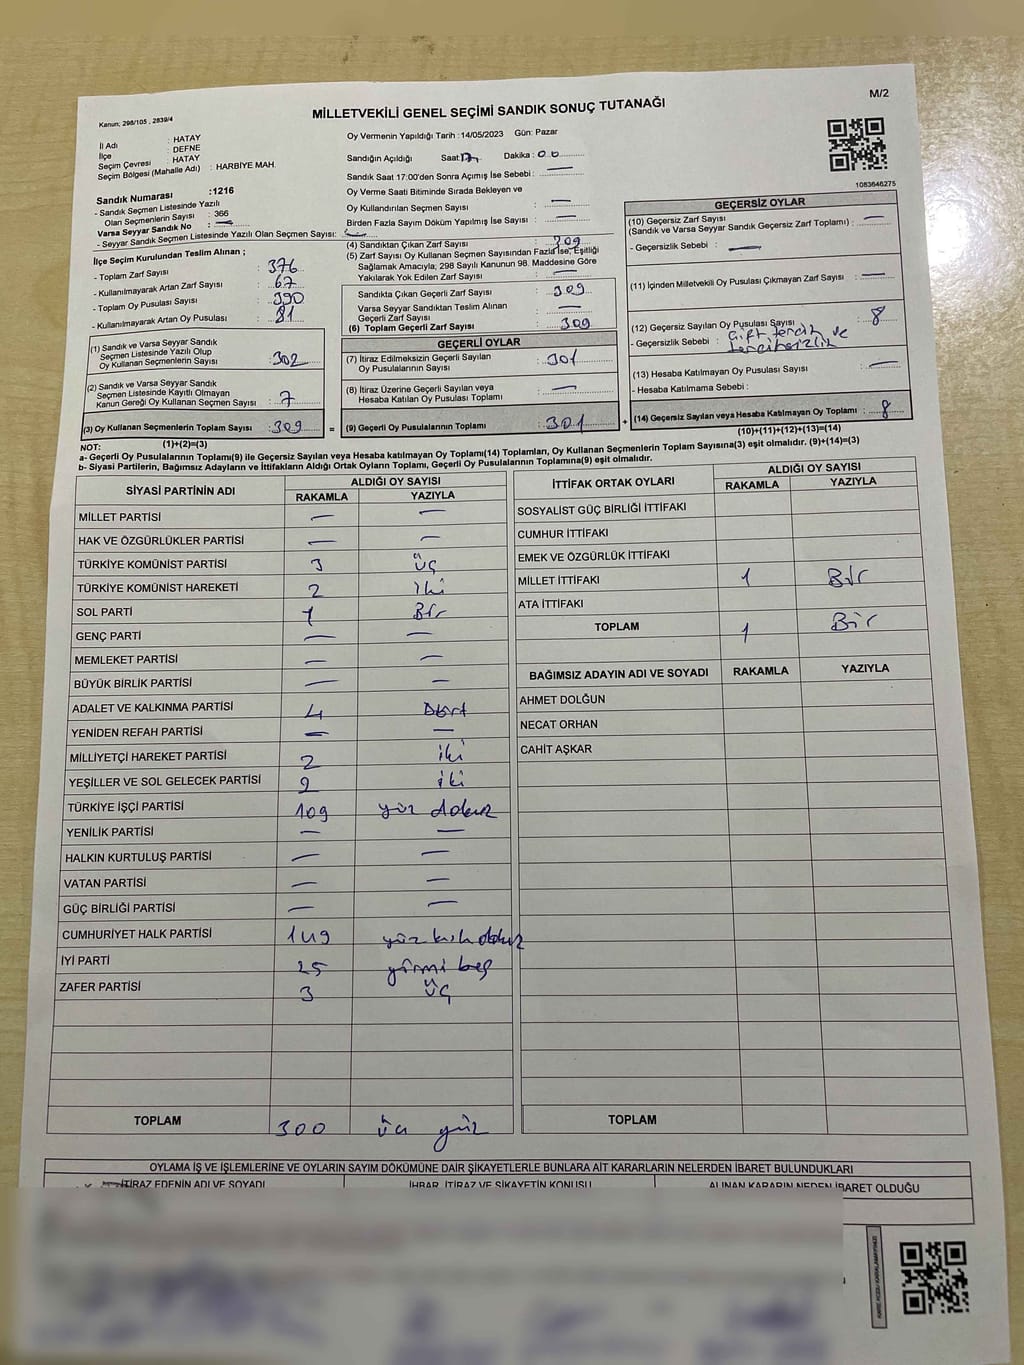 M/2
MİLLETVEKİLİ GENEL SEÇİMİ SANDIK SONUÇ TUTANAĞI
Kanun: 298/105 , 2839/4
İl Adı : HATAY
İlçe : DEFNE
Seçim Çevresi : HATAY
Seçim Bölgesi (Mahalle Adı) : HARBİYE MAH.
Sandık Numarası :1216
- Sandık Seçmen Listesinde Yazılı
Olan Seçmenlerin Sayısı : 366
Varsa Seyyar Sandık No : —
- Seyyar Sandık Seçmen Listesinde Yazılı Olan Seçmen Sayısı: —
İlçe Seçim Kurulundan Teslim Alınan ;
- Toplam Zarf Sayısı : 376
- Kullanılmayarak Artan Zarf Sayısı : 67
- Toplam Oy Pusulası Sayısı : 390
- Kullanılmayarak Artan Oy Pusulası : 81
(1) Sandık ve Varsa Seyyar Sandık
Seçmen Listesinde Yazılı Olup
Oy Kullanan Seçmenlerin Sayısı : 302
(2) Sandık ve Varsa Seyyar Sandık
Seçmen Listesinde Kayıtlı Olmayan
Kanun Gereği Oy Kullanan Seçmen Sayısı : 7
(3) Oy Kullanan Seçmenlerin Toplam Sayısı : 309
(1)+(2)=(3)
Oy Vermenin Yapıldığı Tarih :14/05/2023 Gün: Pazar
Sandığın Açıldığı Saat: 17 Dakika : 00
Sandık Saat 17:00'den Sonra Açılmış İse Sebebi : —
Oy Verme Saati Bitiminde Sırada Bekleyen ve
Oy Kullandırılan Seçmen Sayısı : —
Birden Fazla Sayım Döküm Yapılmış İse Sayısı : —
(4) Sandıktan Çıkan Zarf Sayısı : 309
(5) Zarf Sayısı Oy Kullanan Seçmen Sayısından Fazla İse, Eşitliği
Sağlamak Amacıyla, 298 Sayılı Kanunun 98. Maddesine Göre
Yakılarak Yok Edilen Zarf Sayısı : —
Sandıkta Çıkan Geçerli Zarf Sayısı : 309
Varsa Seyyar Sandıktan Teslim Alınan
Geçerli Zarf Sayısı : —
(6) Toplam Geçerli Zarf Sayısı : 309
GEÇERLİ OYLAR
(7) İtiraz Edilmeksizin Geçerli Sayılan
Oy Pusulalarının Sayısı : 301
(8) İtiraz Üzerine Geçerli Sayılan veya
Hesaba Katılan Oy Pusulası Toplamı : —
= (9) Geçerli Oy Pusulalarının Toplamı : 301 +
1083646275
GEÇERSİZ OYLAR
(10) Geçersiz Zarf Sayısı : —
(Sandık ve Varsa Seyyar Sandık Geçersiz Zarf Toplamı)
- Geçersizlik Sebebi : —
(11) İçinden Milletvekili Oy Pusulası Çıkmayan Zarf Sayısı : —
(12) Geçersiz Sayılan Oy Pusulası Sayısı : 8
- Geçersizlik Sebebi : Çift tercih ve
tercihsizlik
(13) Hesaba Katılmayan Oy Pusulası Sayısı : —
- Hesaba Katılmama Sebebi :
(14) Geçersiz Sayılan veya Hesaba Katılmayan Oy Toplamı : 8
(10)+(11)+(12)+(13)=(14)
NOT:
a- Geçerli Oy Pusulalarının Toplamı(9) ile Geçersiz Sayılan veya Hesaba katılmayan Oy Toplamı(14) Toplamları, Oy Kullanan Seçmenlerin Toplam Sayısına(3) eşit olmalıdır. (9)+(14)=(3)
b- Siyasi Partilerin, Bağımsız Adayların ve İttifakların Aldığı Ortak Oyların Toplamı, Geçerli Oy Pusulalarının Toplamına(9) eşit olmalıdır.
SİYASİ PARTİNİN ADI ALDIĞI OY SAYISI
RAKAMLA YAZIYLA
MİLLET PARTİSİ — —
HAK VE ÖZGÜRLÜKLER PARTİSİ — —
TÜRKİYE KOMÜNİST PARTİSİ 3 üç
TÜRKİYE KOMÜNİST HAREKETİ 2 iki
SOL PARTİ 1 Bir
GENÇ PARTİ — —
MEMLEKET PARTİSİ — —
BÜYÜK BİRLİK PARTİSİ — —
ADALET VE KALKINMA PARTİSİ 4 Dört
YENİDEN REFAH PARTİSİ — —
MİLLİYETÇİ HAREKET PARTİSİ 2 iki
YEŞİLLER VE SOL GELECEK PARTİSİ 2 iki
TÜRKİYE İŞÇİ PARTİSİ 109 yüz dokuz
YENİLİK PARTİSİ — —
HALKIN KURTULUŞ PARTİSİ — —
VATAN PARTİSİ — —
GÜÇ BİRLİĞİ PARTİSİ — —
CUMHURİYET HALK PARTİSİ 149 yüz kırk dokuz
İYİ PARTİ 25 yirmi beş
ZAFER PARTİSİ 3 üç
TOPLAM 300 üç yüz
İTTİFAK ORTAK OYLARI ALDIĞI OY SAYISI
RAKAMLA YAZIYLA
SOSYALİST GÜÇ BİRLİĞİ İTTİFAKI
CUMHUR İTTİFAKI
EMEK VE ÖZGÜRLÜK İTTİFAKI
MİLLET İTTİFAKI 1 Bir
ATA İTTİFAKI
TOPLAM 1 Bir
BAĞIMSIZ ADAYIN ADI VE SOYADI RAKAMLA YAZIYLA
AHMET DOLĞUN
NECAT ORHAN
CAHİT AŞKAR
TOPLAM
OYLAMA İŞ VE İŞLEMLERİNE VE OYLARIN SAYIM DÖKÜMÜNE DAİR ŞİKAYETLERLE BUNLARA AİT KARARLARIN NELERDEN İBARET BULUNDUKLARI
İTİRAZ EDENİN ADI VE SOYADI İHBAR, İTİRAZ VE ŞİKAYETİN KONUSU ALINAN KARARIN NEDEN İBARET OLDUĞU